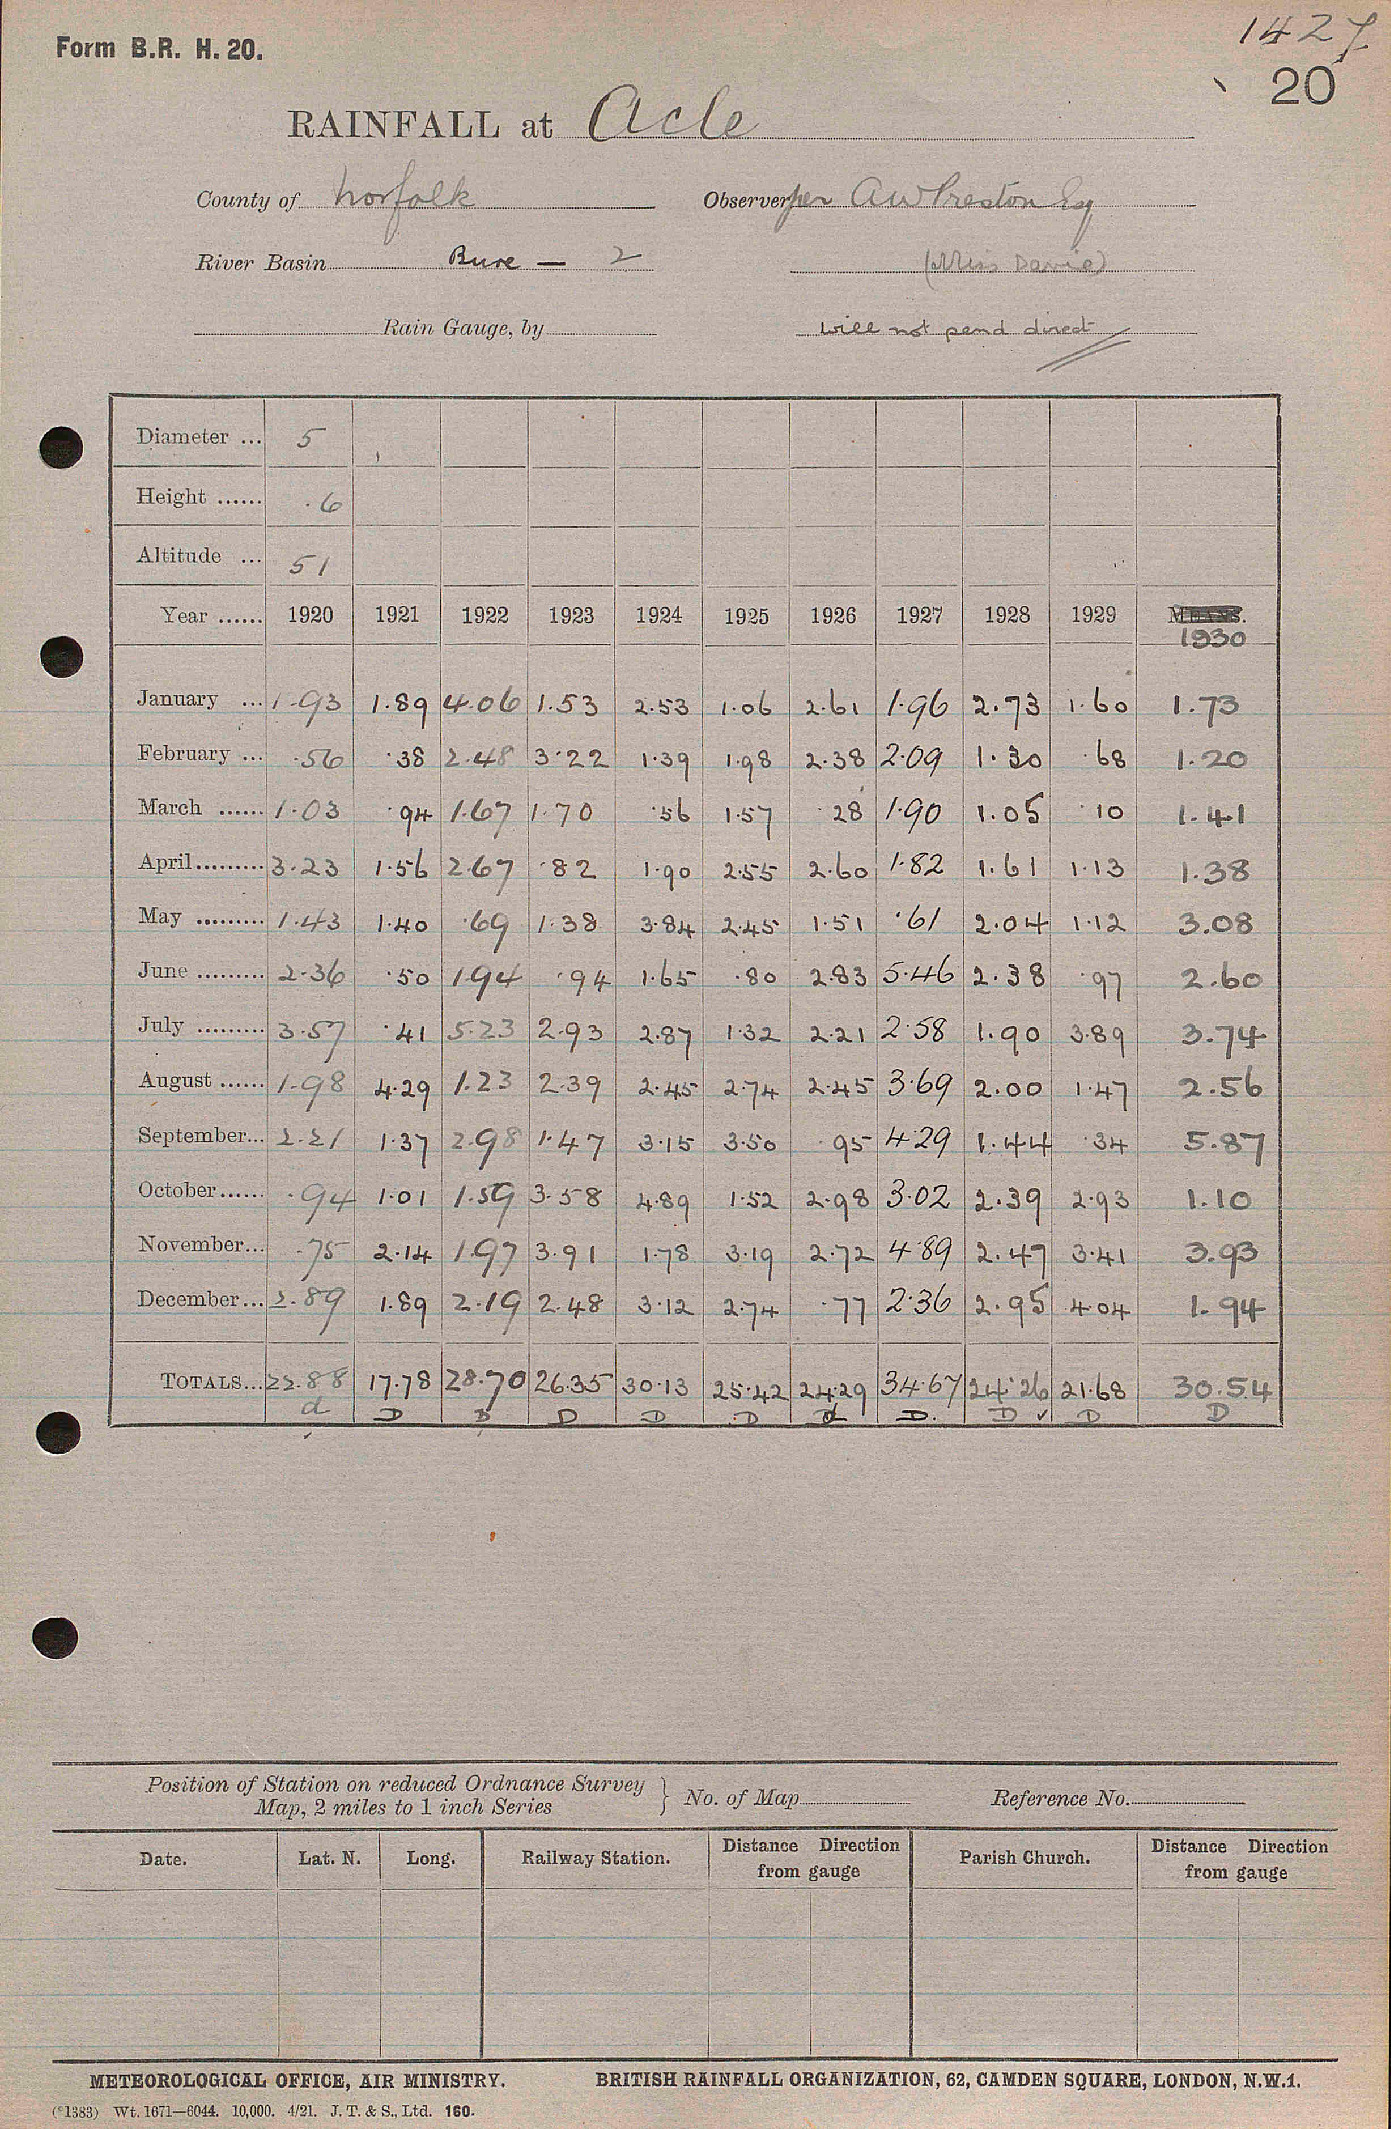 1427
Form B.R. H. 20.
20
RAINFALL at Acle
County of Norfolk Observer per A W Preston Esq
River Basin Bure — 2 (Miss Davie)
Rain Gauge, by will not send direct
Diameter ... 5
Height ...... .6
Altitude ... 51
Year ...... 1920 1921 1922 1923 1924 1925 1926 1927 1928 1929 MEANS.
1930
January ... 1.93 1.89 4.06 1.53 2.53 1.06 2.61 1.96 2.73 1.60 1.73
February ... .56 .38 2.48 3.22 1.39 1.98 2.38 2.09 1.30 .68 1.20
March ...... 1.03 .94 1.67 1.70 .56 1.57 .28 1.90 1.05 .10 1.41
April......... 3.23 1.56 2.67 .82 1.90 2.55 2.60 1.82 1.61 1.13 1.38
May ......... 1.43 1.40 .69 1.38 3.84 2.45 1.51 .61 2.04 1.12 3.08
June ......... 2.36 .50 1.94 .94 1.65 .80 2.83 5.46 2.38 .97 2.60
July ......... 3.57 .41 5.23 2.93 2.87 1.32 2.21 2.58 1.90 3.89 3.74
August ...... 1.98 4.29 1.23 2.39 2.45 2.74 2.45 3.69 2.00 1.47 2.56
September... 2.21 1.37 2.98 1.47 3.15 3.50 .95 4.29 1.44 .34 5.87
October...... .94 1.01 1.59 3.58 4.89 1.52 2.98 3.02 2.39 2.93 1.10
November... .75 2.14 1.97 3.91 1.78 3.19 2.72 4.89 2.47 3.41 3.93
December... 2.89 1.89 2.19 2.48 3.12 2.74 .77 2.36 2.95 4.04 1.94
TOTALS... 22.88 17.78 28.70 26.35 30.13 25.42 24.29 34.67 24.26 21.68 30.54
d D D D D D d D. D ✓ D D
Position of Station on reduced Ordnance Survey
Map, 2 miles to 1 inch Series } No. of Map Reference No.
Date. Lat. N. Long. Railway Station. Distance Direction from gauge Parish Church. Distance Direction from gauge
METEOROLOGICAL OFFICE, AIR MINISTRY. BRITISH RAINFALL ORGANIZATION, 62, CAMDEN SQUARE, LONDON, N.W.1.
(*1383) Wt. 1671—6044. 10,000. 4/21. J. T. & S., Ltd. 160.